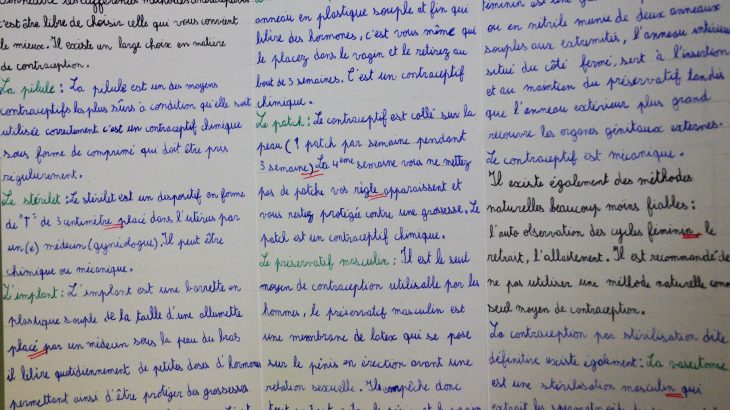 c'est être libre de choisir celle qui vous convient
le mieux. Il existe un large choix en matière
de contraception.
La pilule : La pilule est un des moyens
contraceptifs les plus sûrs à condition qu'elle soit
utilisée correctement c'est un contraceptif chimique
sous forme de comprimé qui doit être pris
régulièrement.
Le stérilet : Le stérilet est un dispositif en forme
de "T" de 3 centimètre placé dans l'utérus par
un(e) médecin (gynécologue). Il peut être
chimique ou mécanique.
L'implant : L'implant est une barrette en
plastique souple de la taille d'une allumette
placé par un médecin sous la peau du bras
il libère quotidiennement de petites doses d'hormones
permettant ainsi d'être protéger des grossesses
anneau en plastique souple et fin qui
libère des hormones, c'est vous même qui
le placez dans le vagin et le retirez au
bout de 3 semaines. C'est un contraceptif
chimique.
Le patch : Le contraceptif est collé sur la
peau (1 patch par semaine pendant
3 semaine). La 4ème semaine vous ne mettez
pas de patche vos règle apparaissent et
vous restez protégée contre une grossesse. Le
patch est un contraceptif chimique.
Le préservatif masculin : Il est le seul
moyen de contraception utilisable par les
hommes, le préservatif masculin est
une membrane de latex qui se pose
sur le pénis en érection avant une
relation sexuelle. Il empêche donc
féminin est une
ou en nitrile munie de deux anneaux
souples aux extremités, l'anneau intérieur
situé du côté fermé, sert à l'insertion
et au maintien du préservatif tandis
que l'anneau extérieur plus grand
recouvre les organes génitaux externes.
Le contraceptif est mécanique.
Il existe également des méthodes
naturelles beaucoup moins fiables :
l'auto observation des cycles féminin, le
retrait, l'allaitement. Il est recommandé de
ne pas utiliser une méthode naturelle comme
seul moyen de contraception.
La contraception par stérilisation dite
définitive existe également : La vasectomie
est une stérilisation masculin qui